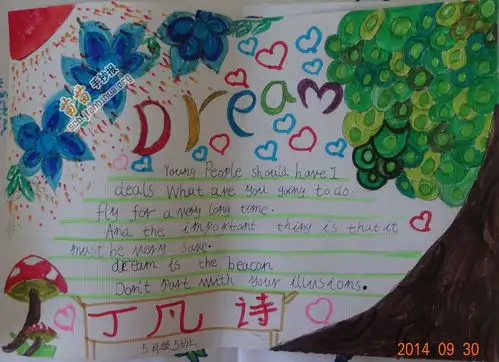 Dream
Young People should have I
deals What are you going to do
fly for a very long time.
And the important thing is that it
must be very sare.
dream is the beacon
Don't part with your illusions.
丁凡诗
5年级5班
2014 09 30